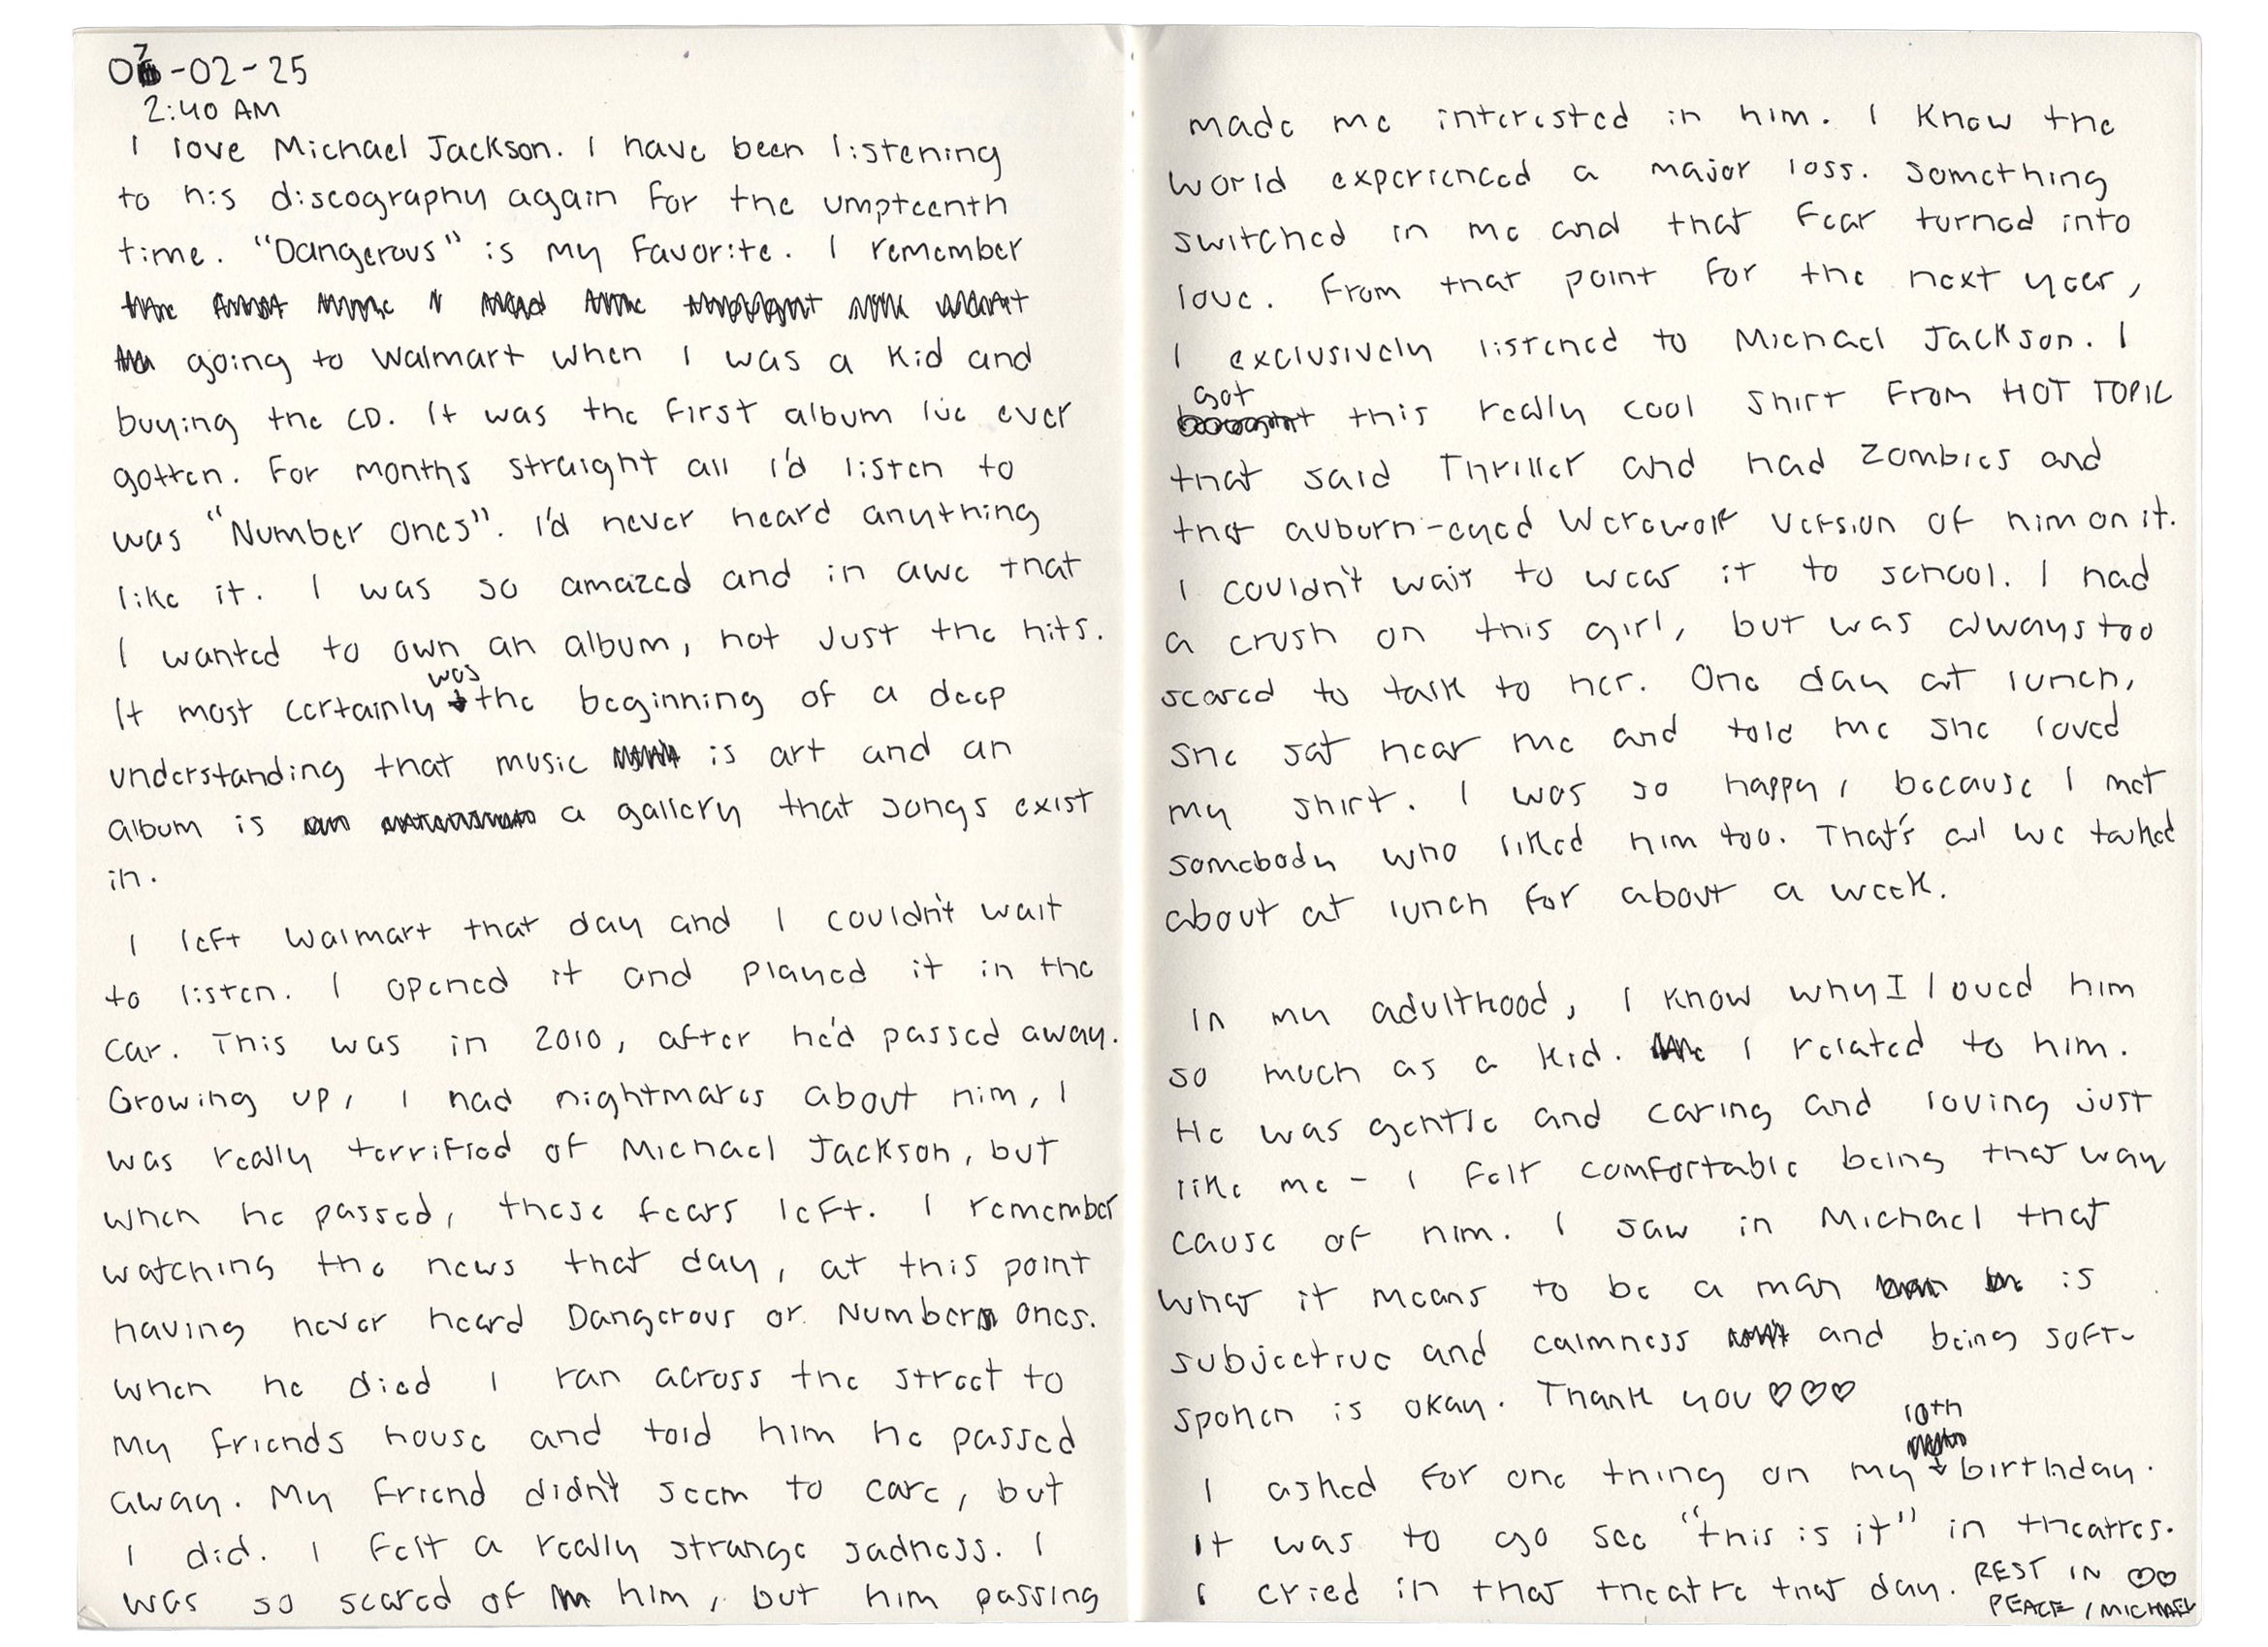 07-02-25
2:40 AM
I love Michael Jackson. I have been listening
to his discography again for the umpteenth
time. "Dangerous" is my favorite. I remember
going to Walmart when I was a kid and
buying the CD. It was the first album I've ever
gotten. For months straight all I'd listen to
was "Number Ones". I'd never heard anything
like it. I was so amazed and in awe that
I wanted to own an album, not just the hits.
It most certainly was the beginning of a deep
understanding that music is art and an
album is a gallery that songs exist
in.
I left Walmart that day and I couldn't wait
to listen. I opened it and played it in the
car. This was in 2010, after he'd passed away.
Growing up, I had nightmares about him, I
was really terrified of Michael Jackson, but
when he passed, these fears left. I remember
watching the news that day, at this point
having never heard Dangerous or Number Ones.
When he died I ran across the street to
my friends house and told him he passed
away. My friend didn't seem to care, but
I did. I felt a really strange sadness. I
was so scared of him, but him passing
made me interested in him. I know the
world experienced a major loss. Something
switched in me and that fear turned into
love. From that point for the next year,
I exclusively listened to Michael Jackson. I
got this really cool shirt from HOT TOPIC
that said Thriller and had zombies and
that auburn-eyed werewolf version of him on it.
I couldn't wait to wear it to school. I had
a crush on this girl, but was always too
scared to talk to her. One day at lunch,
she sat near me and told me she loved
my shirt. I was so happy, because I met
somebody who liked him too. That's all we talked
about at lunch for about a week.
In my adulthood, I know why I loved him
so much as a kid. I related to him.
He was gentle and caring and loving just
like me - I felt comfortable being that way
cause of him. I saw in Michael that
what it means to be a man is
subjective and calmness and being soft-
spoken is okay. Thank you ♡♡♡
I asked for one thing on my 10th birthday.
It was to go see "this is it" in theatres.
I cried in that theatre that day. REST IN ♡♡
PEACE, MICHAEL